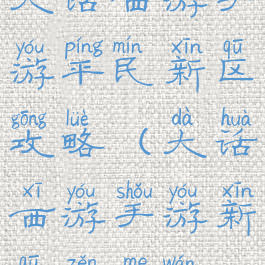 大话西游手
yóu píng mín xīn qū
游平民新区
gōng lüè dà huà
攻略（大话
xī yóu shǒu yóu xīn
西游手游新
qū zěn me wán